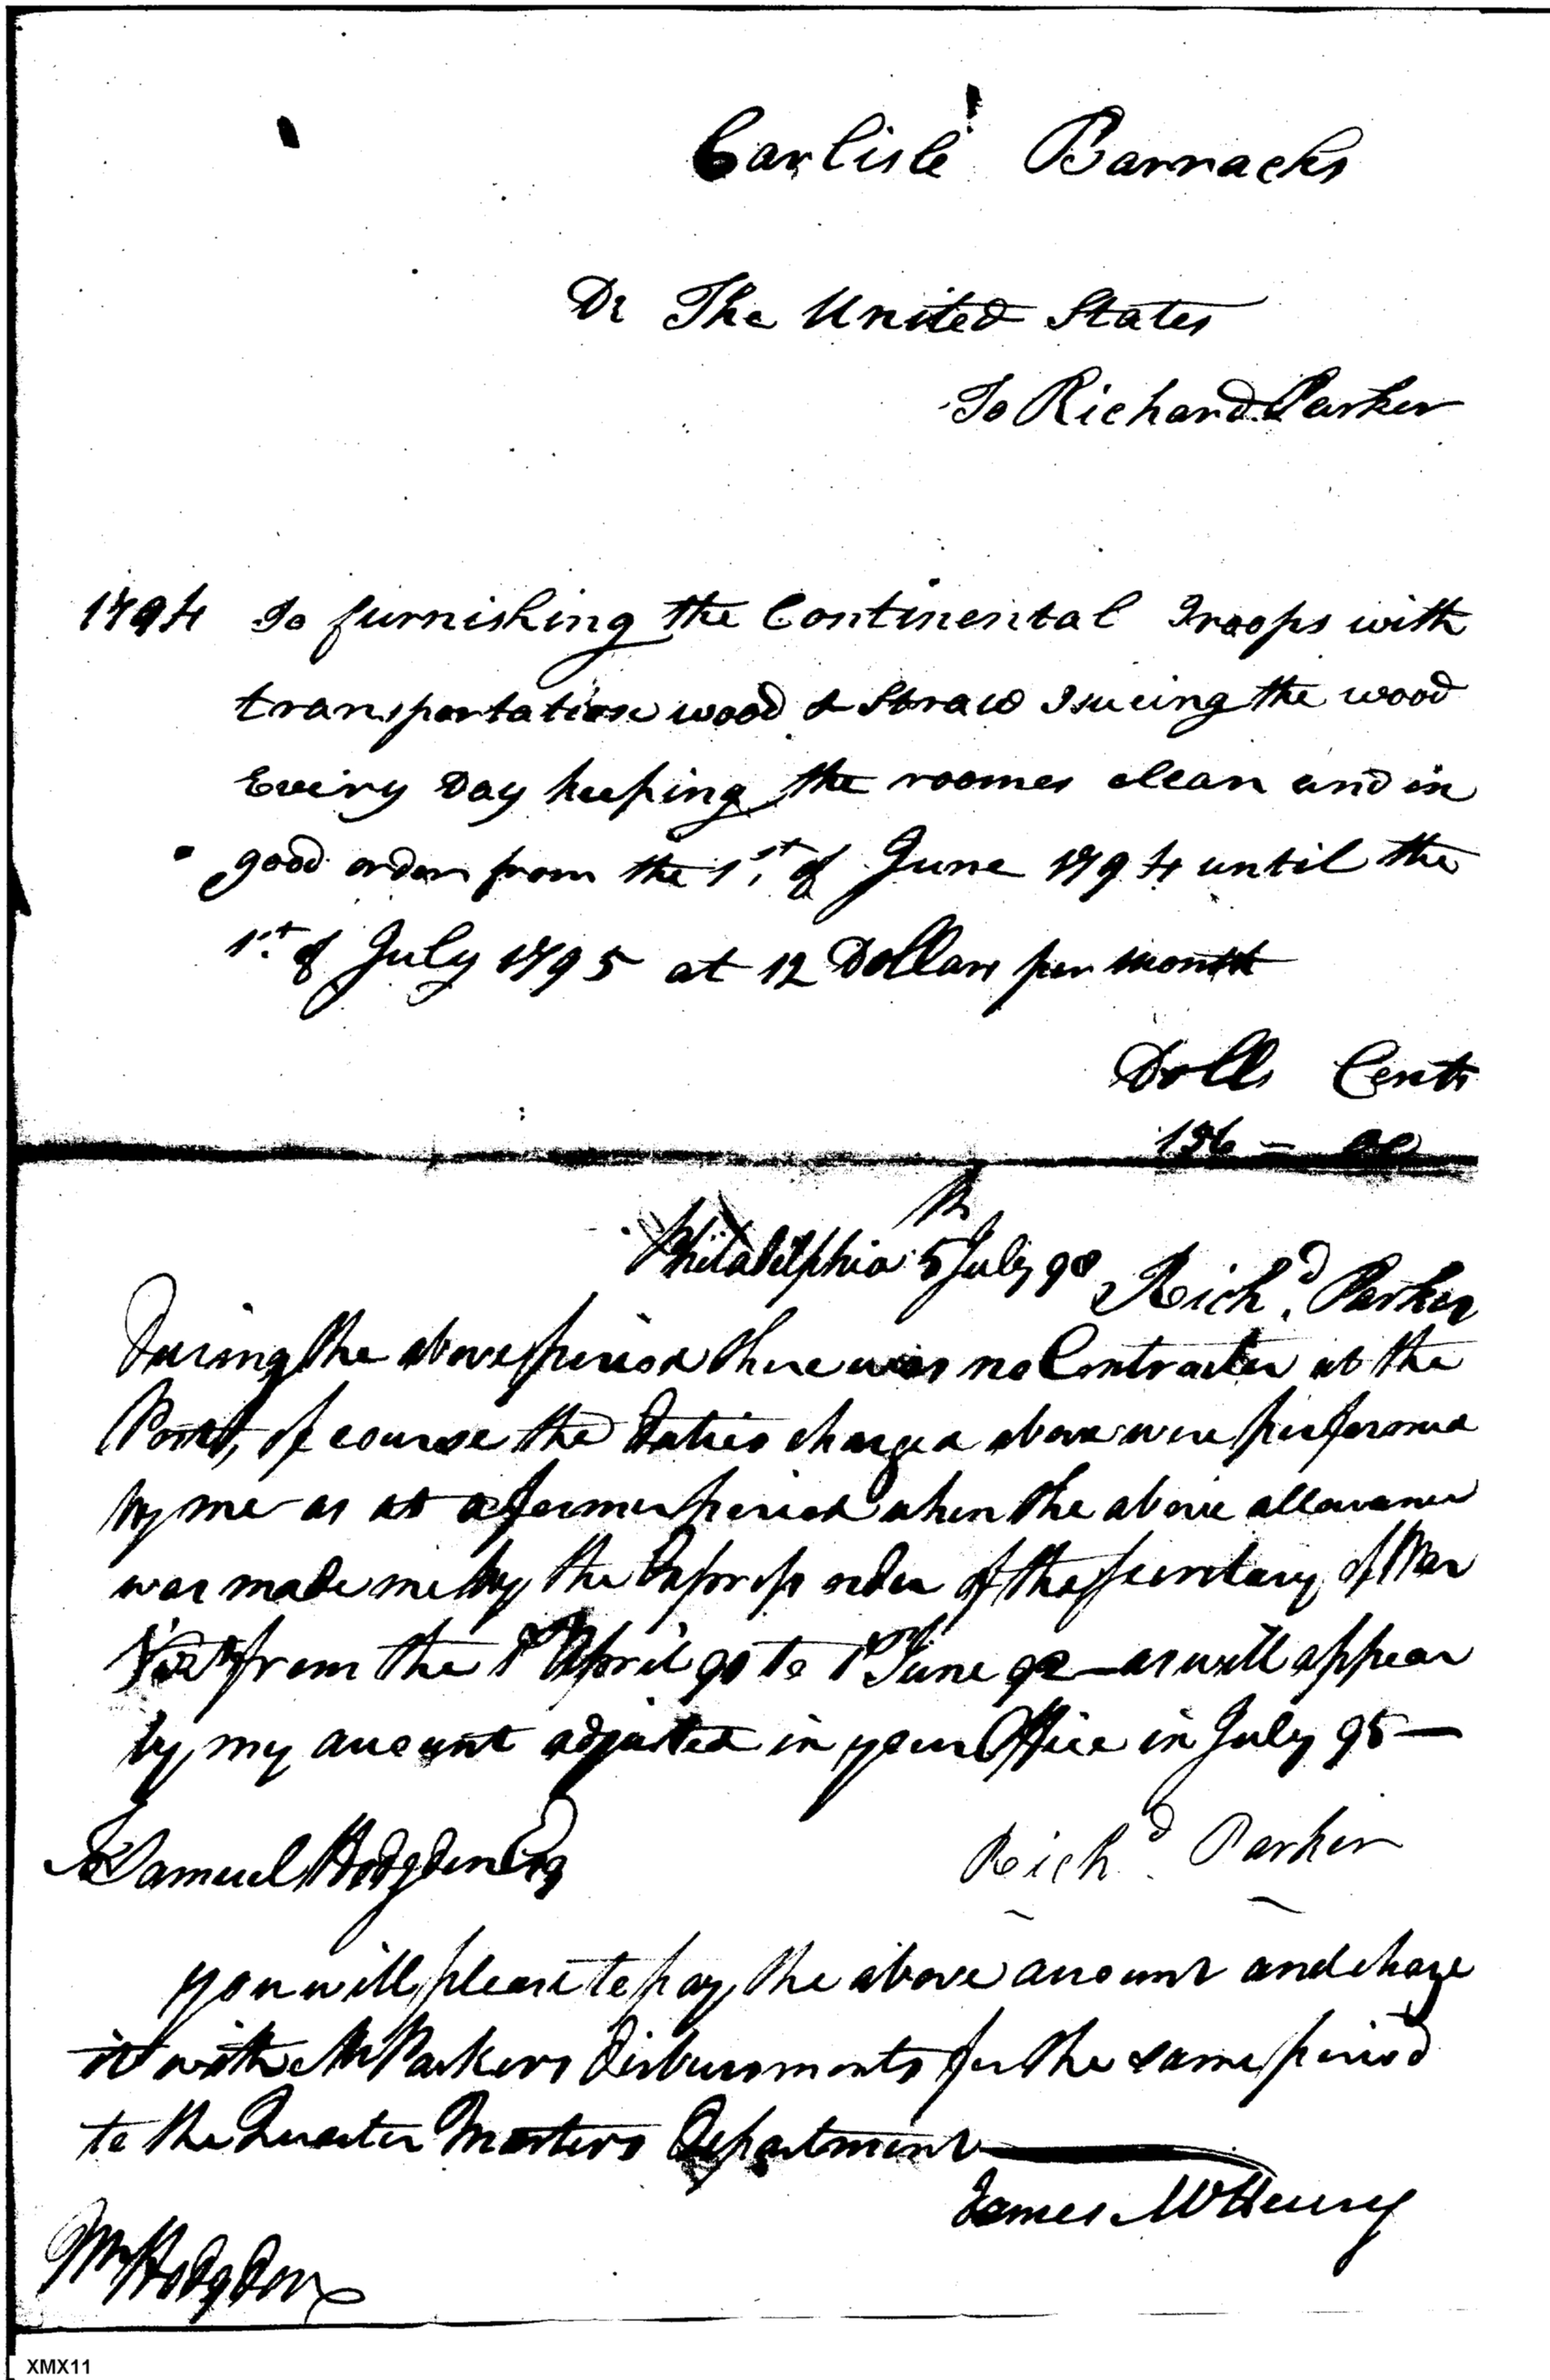 Carlisle Barracks
Dr The United States
To Richard Parker
1794 To furnishing the Continental Troops with
transportation wood & Straw Isueing the wood
Every Day keeping the roomes clean and in
good order from the 1st of June 1794 until the
1st of July 1795 at 12 Dollars per month
Dolls Cents
156 - 00
Philadelphia 5th July 98
Richd Parker
During the above period there was no Contractor at the
Post, of course the duties charged above were performed
by me as at a former period when the above allowance
was made me by the Express order of the Secretary of War
from the 1st April 90 to 1st June 92 - as will appear
by my account adjusted in your Office in July 95 —
Richd Parker
To Samuel Hodgden Esq
you will please to pay the above amount and charge
it with Mr Parkers disbursments for the same period
to the Quarter Masters Department —
James McHenry
Mr Hodgdon
XMX11